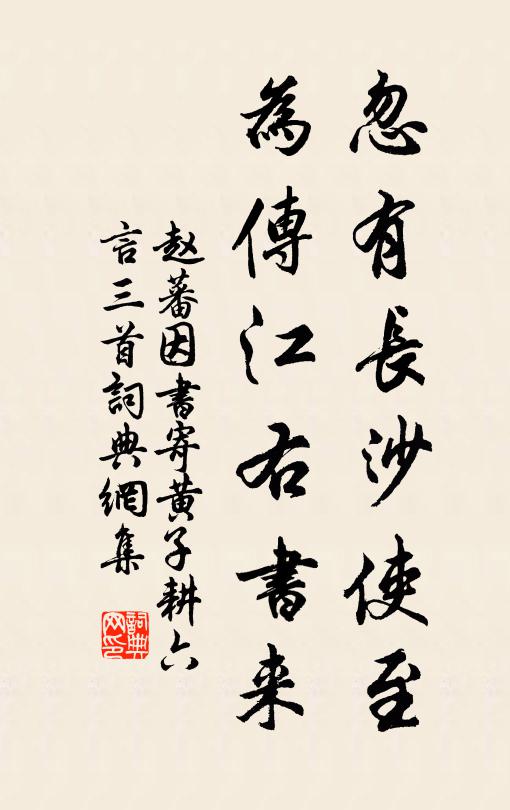 忽有長沙使至
為傳江右書来
赵蕃因書寄黄子耕六
言三首詞典網集
詞典
网印